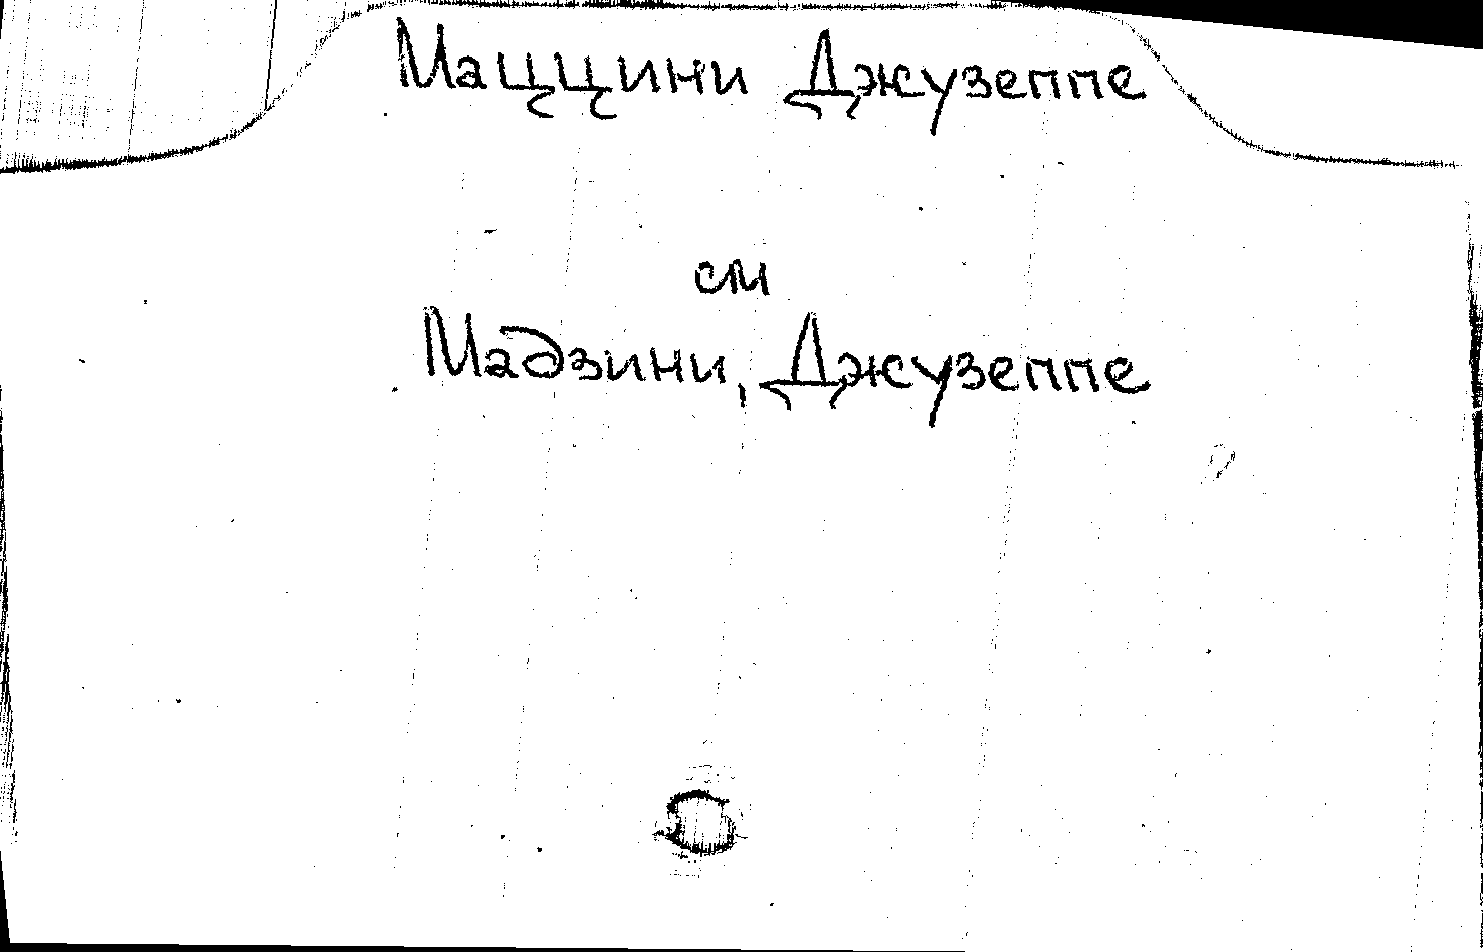 Маццини Джузеппе
см
Мадзини, Джузеппе